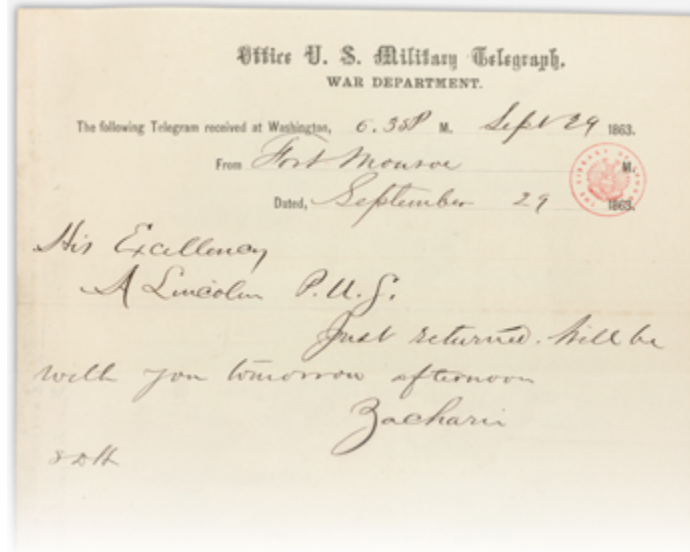 Office U. S. Military Telegraph,
WAR DEPARTMENT.
The following Telegram received at Washington, 6.35P M. Sept 29 1863.
From Fort Monroe M.
Dated, September 29 1863.
His Excellency
A Lincoln P.U.S.
Just returned. Will be
with you tomorrow afternoon
Zacharie